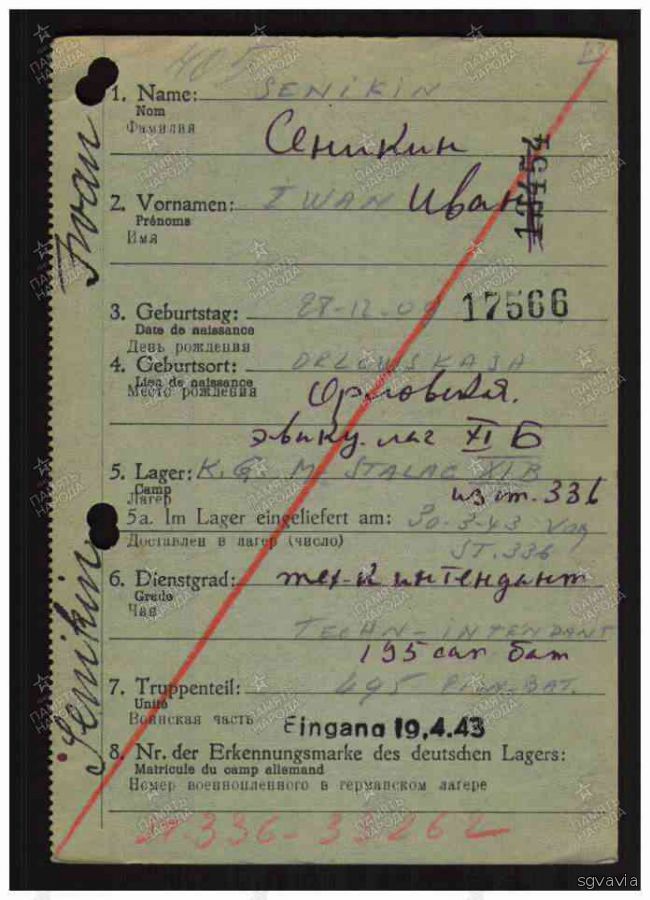 405
1. Name: SENIKIN
Nom
Фамилия
Сеникин
2. Vornamen: IWAN Иван
Prénoms
Имя
3. Geburtstag: 28-12-09 17566
Date de naissance
День рождения
4. Geburtsort: ORLOWSKAJA
Lieu de naissance
Место рождения
Орловская.
эваку. лаг XI Б
5. Lager: K. G. M. STALAG XI B
Camp
Лагерь
из ст. 336
5a. Im Lager eingeliefert am: 30-3-43 von
Доставлен в лагер (число)
ST. 336
6. Dienstgrad: тех-к интендант
Grade
Чин
TECHN-INTENDANT
195 сап бат
7. Truppenteil: 495 PION-BAT.
Unité
Воинская часть
Eingang 19.4.43
8. Nr. der Erkennungsmarke des deutschen Lagers:
Matricule du camp allemand
Номер военнопленного в германском лагере
ST-336-33262
Senikin Iwan
ПАМЯТЬ НАРОДА
sgvavia